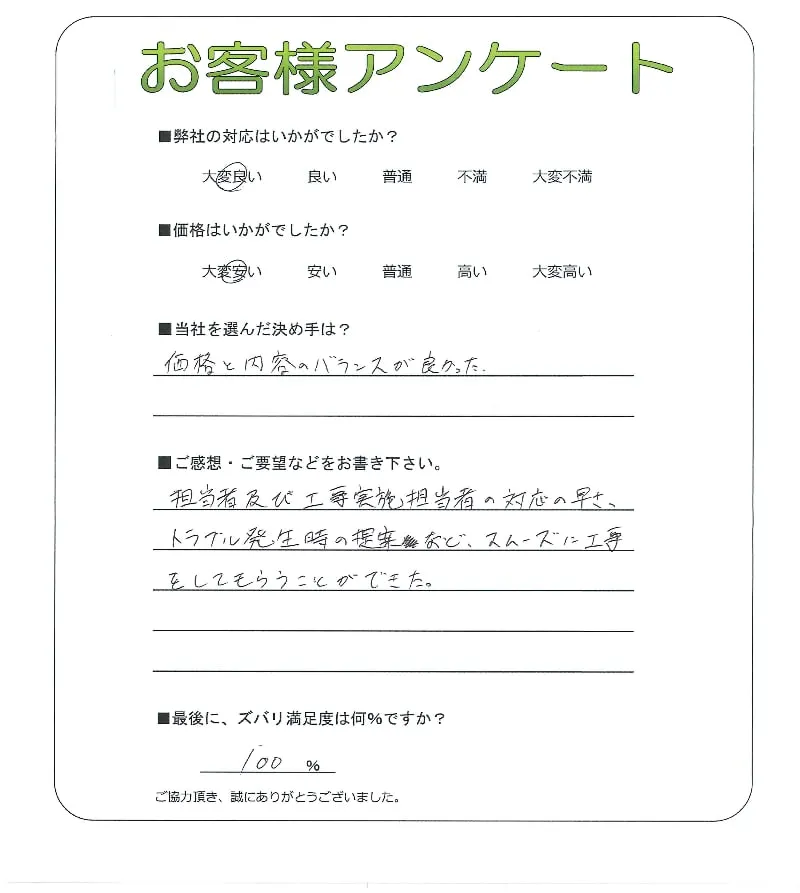 お客様アンケート
■弊社の対応はいかがでしたか？
大変良い 良い 普通 不満 大変不満
■価格はいかがでしたか？
大変安い 安い 普通 高い 大変高い
■当社を選んだ決め手は？
価格と内容のバランスが良かった.
■ご感想・ご要望などをお書き下さい。
担当者及び工事実施担当者の対応の早さ、
トラブル発生時の提案など、スムーズに工事
をしてもらうことができた。
■最後に、ズバリ満足度は何%ですか？
100 %
ご協力頂き、誠にありがとうございました。